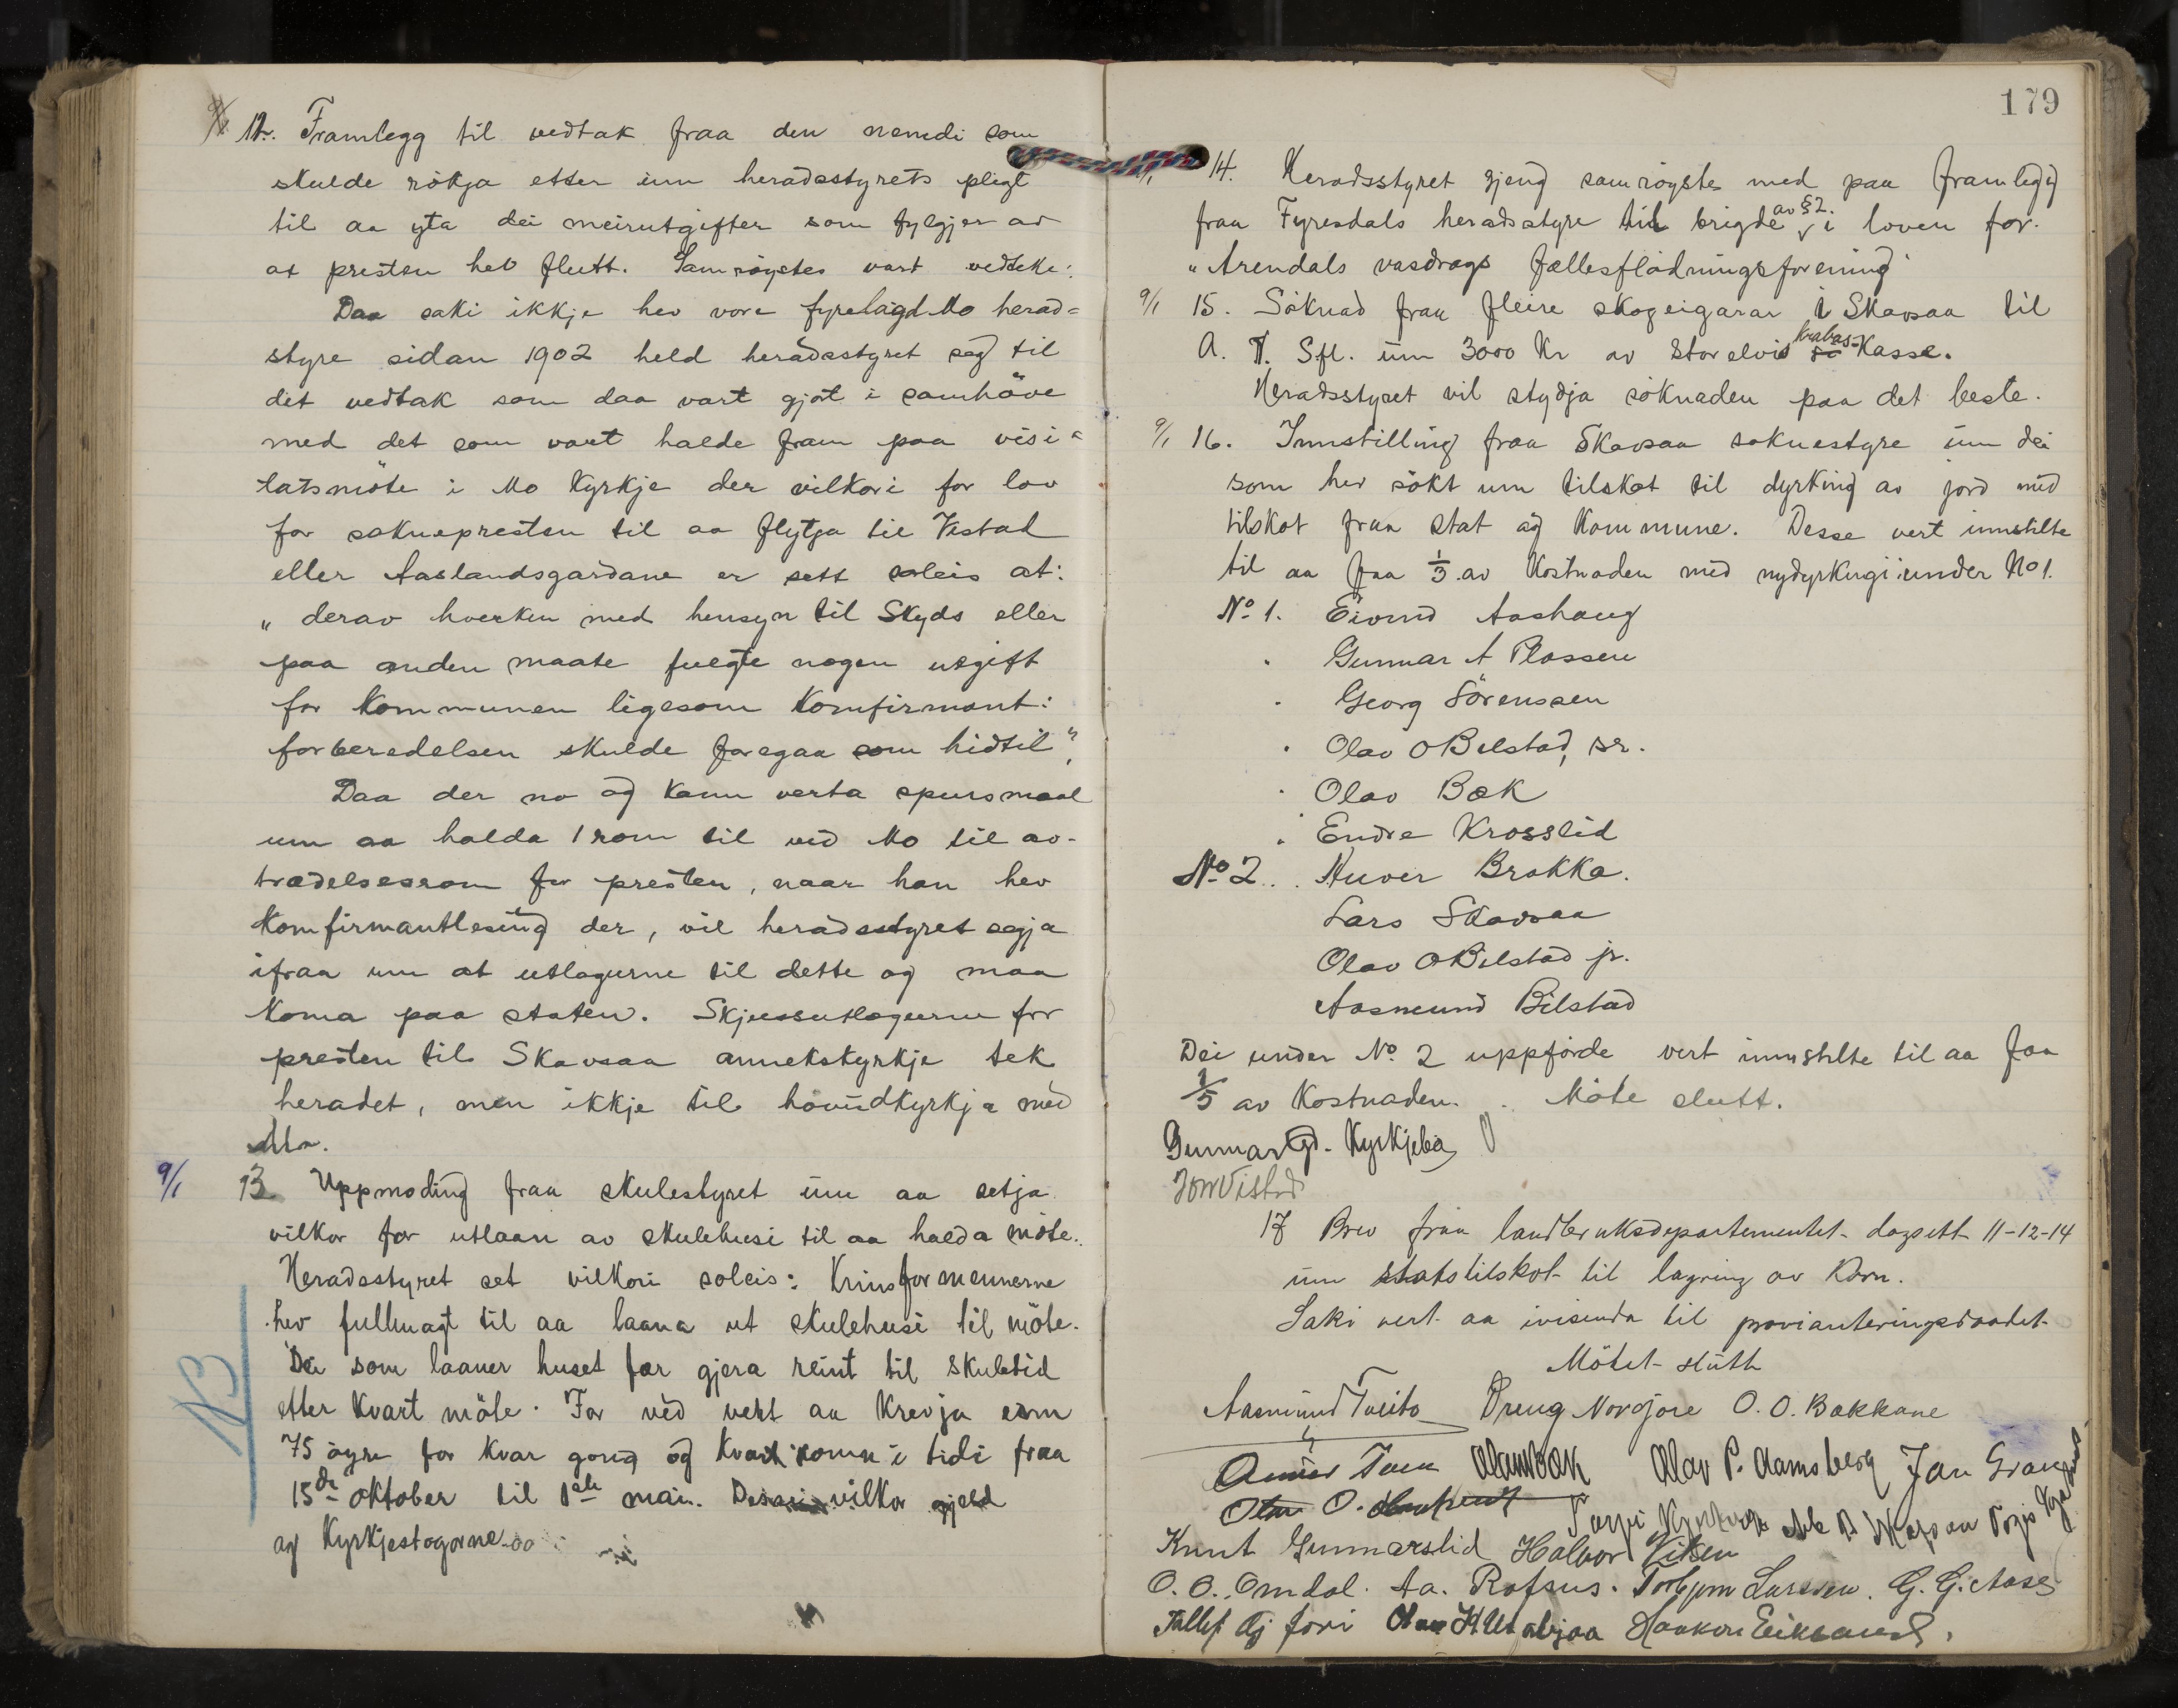 12. Framlegg til vedtak fraa den nemdi som
skulde rökja etter um heradsstyrets pligt
til aa yta dei meirutgifter som fylgjer av
at presten hev flutt. Samröystes vart vedteke:
Daa saki ikkje hev vore fyrelagd Mo herad=
styre sidan 1902 held heradsstyret seg til
det vedtak som daa vart gjöt i samhöve
med det som vart halde fram paa visi=
tatsmöte i Mo Kyrkje der vilkori for lov
for sokneprestem til aa flytja til Vistad
eller Aaslandsgardane er sett soleis at:
„ derav hverken med hensyn til Skyds eller
paa anden maate fulgte nogen utgift
for Kommunen ligesom Konfirmant:
forberedelsen skulde foregaa som hidtil".
Daa der no og kann verta spursmaal
um aa halda 1 rom til ved Mo til av-
trædelsesrom for presten, naar han hev
Komfirmantlesing der, vil heradsstyret segja
ifraa um at utlogurne til dette og maa
Koma paa staten. Skjussutlogurne for
presten til Skavsaa annekskyrkje tek
heradet, men ikkje til hovudkyrkja med
Mo.
9/1 13 Uppmoding fraa skulestyret um aa setja
vilkor for utlaan av skulehusi til aa halda möte.
Heradsstyret set vilkori soleis: Krinsformennerne
hev fullmagt til aa laana ut skulehusi til möte.
Dei som laaner huset fær gjera reint til skuletid
etter kvart möte. For ved vert aa krevja som
75 öyre for kvar gong og kvart romm i tidi fraa
15de oktober til 1ste mai. vilkor gjeld
og Kyrkjestogorne
N3
179
14. Heradsstyret gjeng samröystes med paa framlegg
fraa Fyresdals heradsstyre til brigde av §2. i loven for
„Arendals vasdrags fællesflödningsforening"
9/1 15. Söknad fraa fleire skogeigarar i Skavsaa til
A. T. Sfl. um 3000 Kr av Storelvis krabas-Kasse.
Heradsstyret vil stydja söknaden paa det beste.
9/1 16. Innstilling fraa Skavsaa soknestyre um dei
som hev sökt um tilskot til dyrking av jord med
tilskot fraa stat og Kommune. Desse vert innstilte
til aa faa 1/3 av Kostnaden med nydyrkingi under No 1.
No 1. Eivind Aashaug
Gunnar A Plassen
Georg Sörenssen
Olav O Bilstad, sr.
Olav Bæk
Endre Krosslid
No 2. Brokka.
Lars Skavsaa
Olav O Bilstad jr.
Aasmund Bilstad
Dei under No 2 uppförde vert innstilte til aa faa
1/5 av Kostnaden. Möte slutt.
Gunnar Gd. Kyrkjebö
Jon Vistad
17 Brev fraa landbruksdepartementet dagsett 11-12-14
um statstilskot til lagring av Korn.
Saki vert aa ivisenda til provianteringsraadet
Mötet slutt
Aasmund Tveito Dreng Nordjore O. O. Bakkane
Olav Bæk Olav P. Aamsberg Jan
Olav O.
Knut Gunnarslid Halvor Viken
O. O. Omdal. Aa. Rofsus. Torbjörn Larssen. G. G. Aase
Haakon Eikeland.